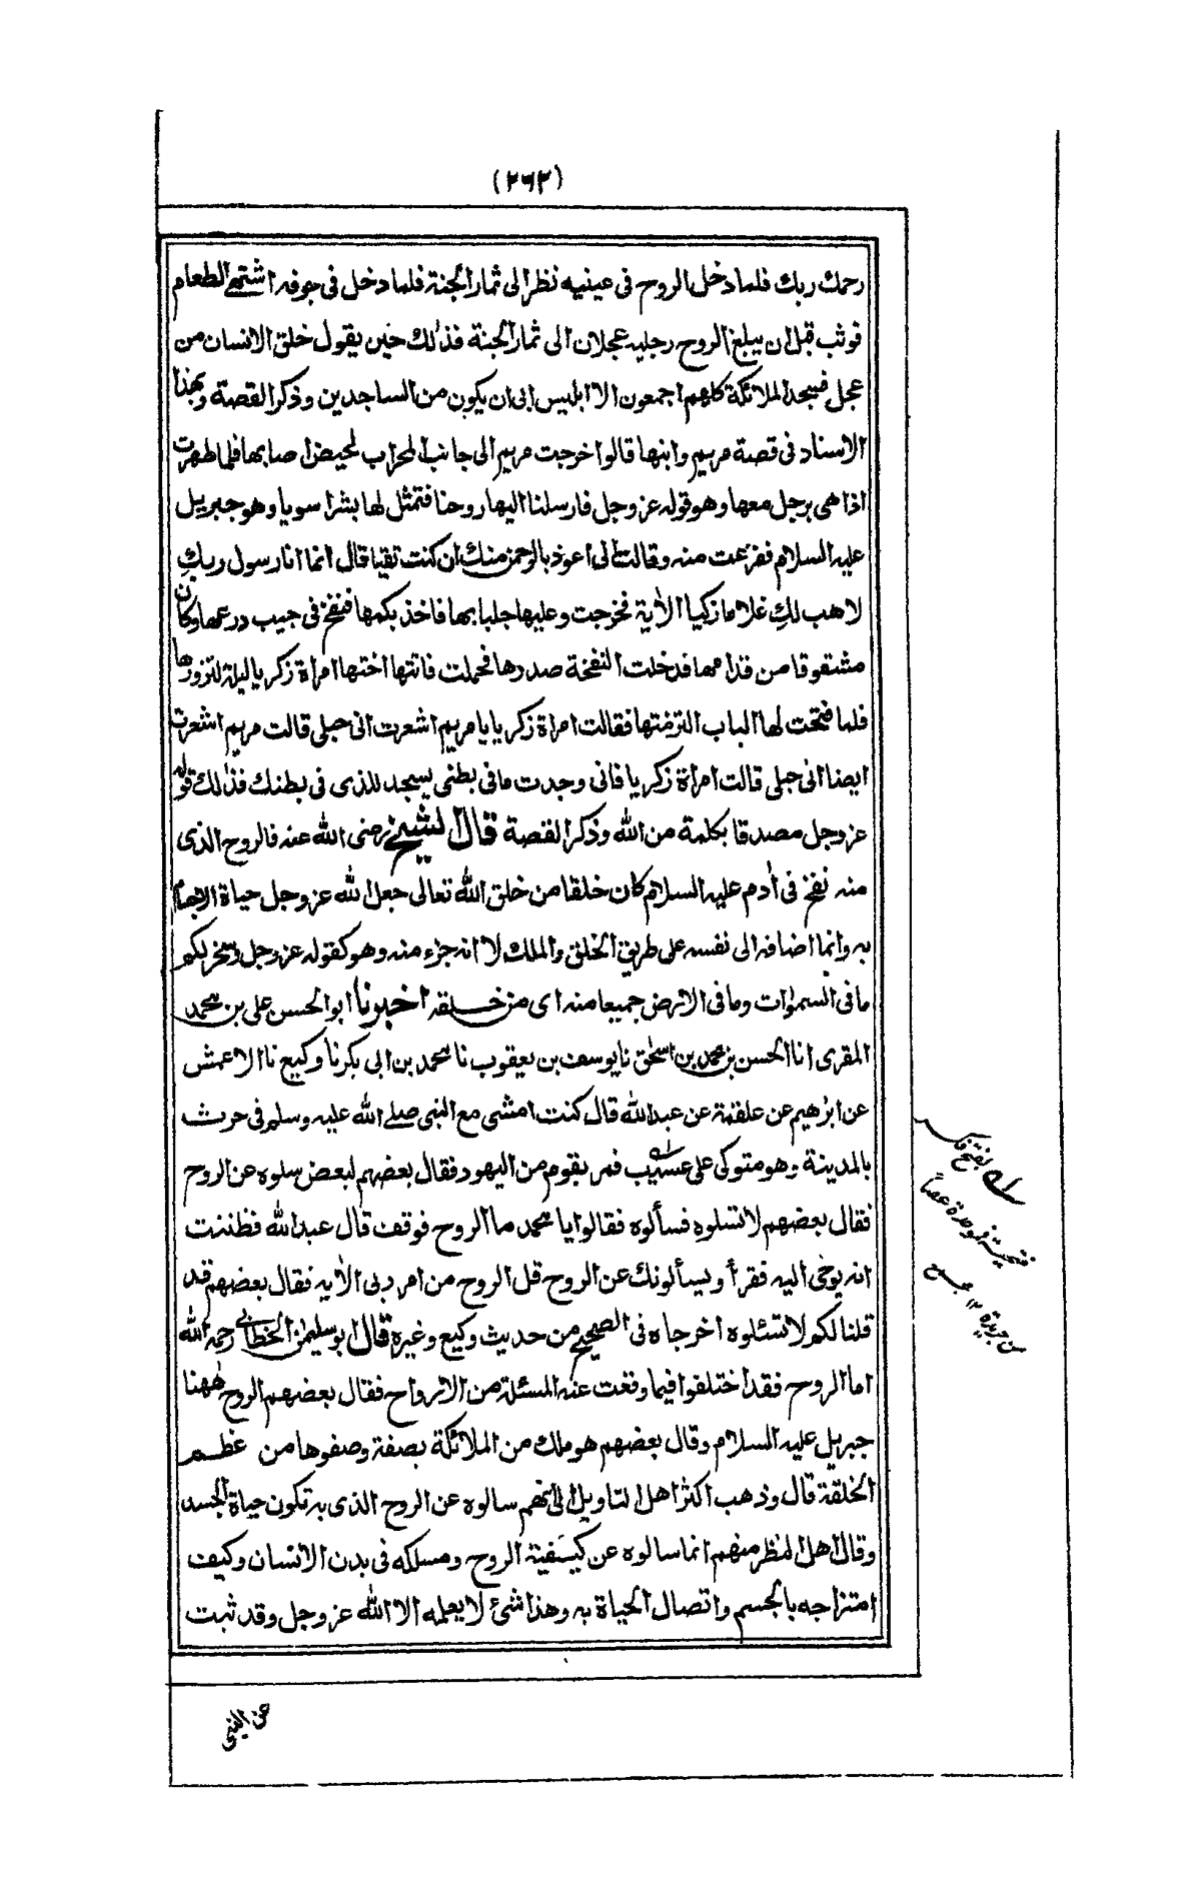 (٢٦٢)
رحمك ربك فلما دخل الروح فى عينيه نظر الى ثمار الجنة فلما دخل فى جوفه اشتهى الطعام
فوثب قبل ان يبلغ الروح رجليه عجلان الى ثمار الجنة فذلك حين يقول خلق الانسان من
عجل فسجد الملائكة كلهم اجمعون الا ابليس ابى ان يكون من الساجدين وذكر القصة وبهذا
الاسناد فى قصة مريم وابنها قالوا خرجت مريم الى جانب المحراب لحيض اصابها فلما طهرت
اذا هى برجل معها وهو قوله عز وجل فارسلنا اليها روحنا فتمثل لها بشرا سويا وهو جبريل
عليه السلام ففزعت منه وقالت انى اعوذ بالرحمن منك ان كنت تقيا قال انما انا رسول ربكِ
لاهب لكِ غلاما زكيا الاٰية فخرجت وعليها جلبابها فاخذ بكمها فنفخ فى جيب درعها وكان
مشقوقا من قدامها فدخلت النفخة صدرها فحملت فاتتها اختها امراة زكريا ليلة لتزورها
فلما فتحت لها الباب التزمتها فقالت امراة زكريا يا مريم اشعرت انى حبلى قالت مريم اشعرت
ايضا انى حبلى قالت امراة زكريا فانى وجدت ما فى بطنى يسجد للذى فى بطنك فذلك قوله
عز وجل مصدقا بكلمة من الله وذكر القصة قال الشيخ رضى الله عنه فالروح الذى
منه نفخ فى اٰدم عليه السلام كان خلقا من خلق الله تعالى جعل الله عز وجل حياة الاجسام
به وانما اضافه الى نفسه على طريق الخلق والملك لا انه جزء منه وهو كقوله عز وجل وسخر لكم
ما فى السمٰوات وما فى الارض جميعا منه اى من خلقه اخبرنا ابو الحسن على بن محمد
المقرى انا الحسن بن محمد بن اسحٰق نا يوسف بن يعقوب نا محمد بن ابى بكر نا وكيع نا الاعمش
عن ابرٰهيم عن علقمة عن عبد الله قال كنت امشى مع النبى صلے الله عليه وسلم فى حرث
بالمدينة وهو متوكى على عسيب فمر بقوم من اليهود فقال بعضهم لبعض سلوه عن الروح
فقال بعضهم لا تسلوه فسألوه فقالوا يا محمد ما الروح فوقف قال عبد الله فظننت
انه يوحٰى اليه فقرأ ويسألونك عن الروح قل الروح من امر ربى الاٰيه فقال بعضهم قد
قلنا لكم لا تسئلوه اخرجاه فى الصحيح من حديث وكيع وغيره قال ابو سليمٰن الخطابى رحمه الله
اما الروح فقد اختلفوا فيما وقعت عنه المسئلة من الارواح فقال بعضهم الروح هٰهنا
جبريل عليه السلام وقال بعضهم هو ملك من الملائكة بصفة وصفوها من عظم
الخلقة قال وذهب اكثر اهل التاويل الى انهم سالوه عن الروح الذى به تكون حياة الجسد
وقال اهل النظر منهم انما سالوه عن كيفية الروح ومسلكه فى بدن الانسان وكيف
امتزاجه بالجسم واتصال الحياة به وهذا شئ لا يعلمه الا الله عز وجل وقد ثبت
عن النبى